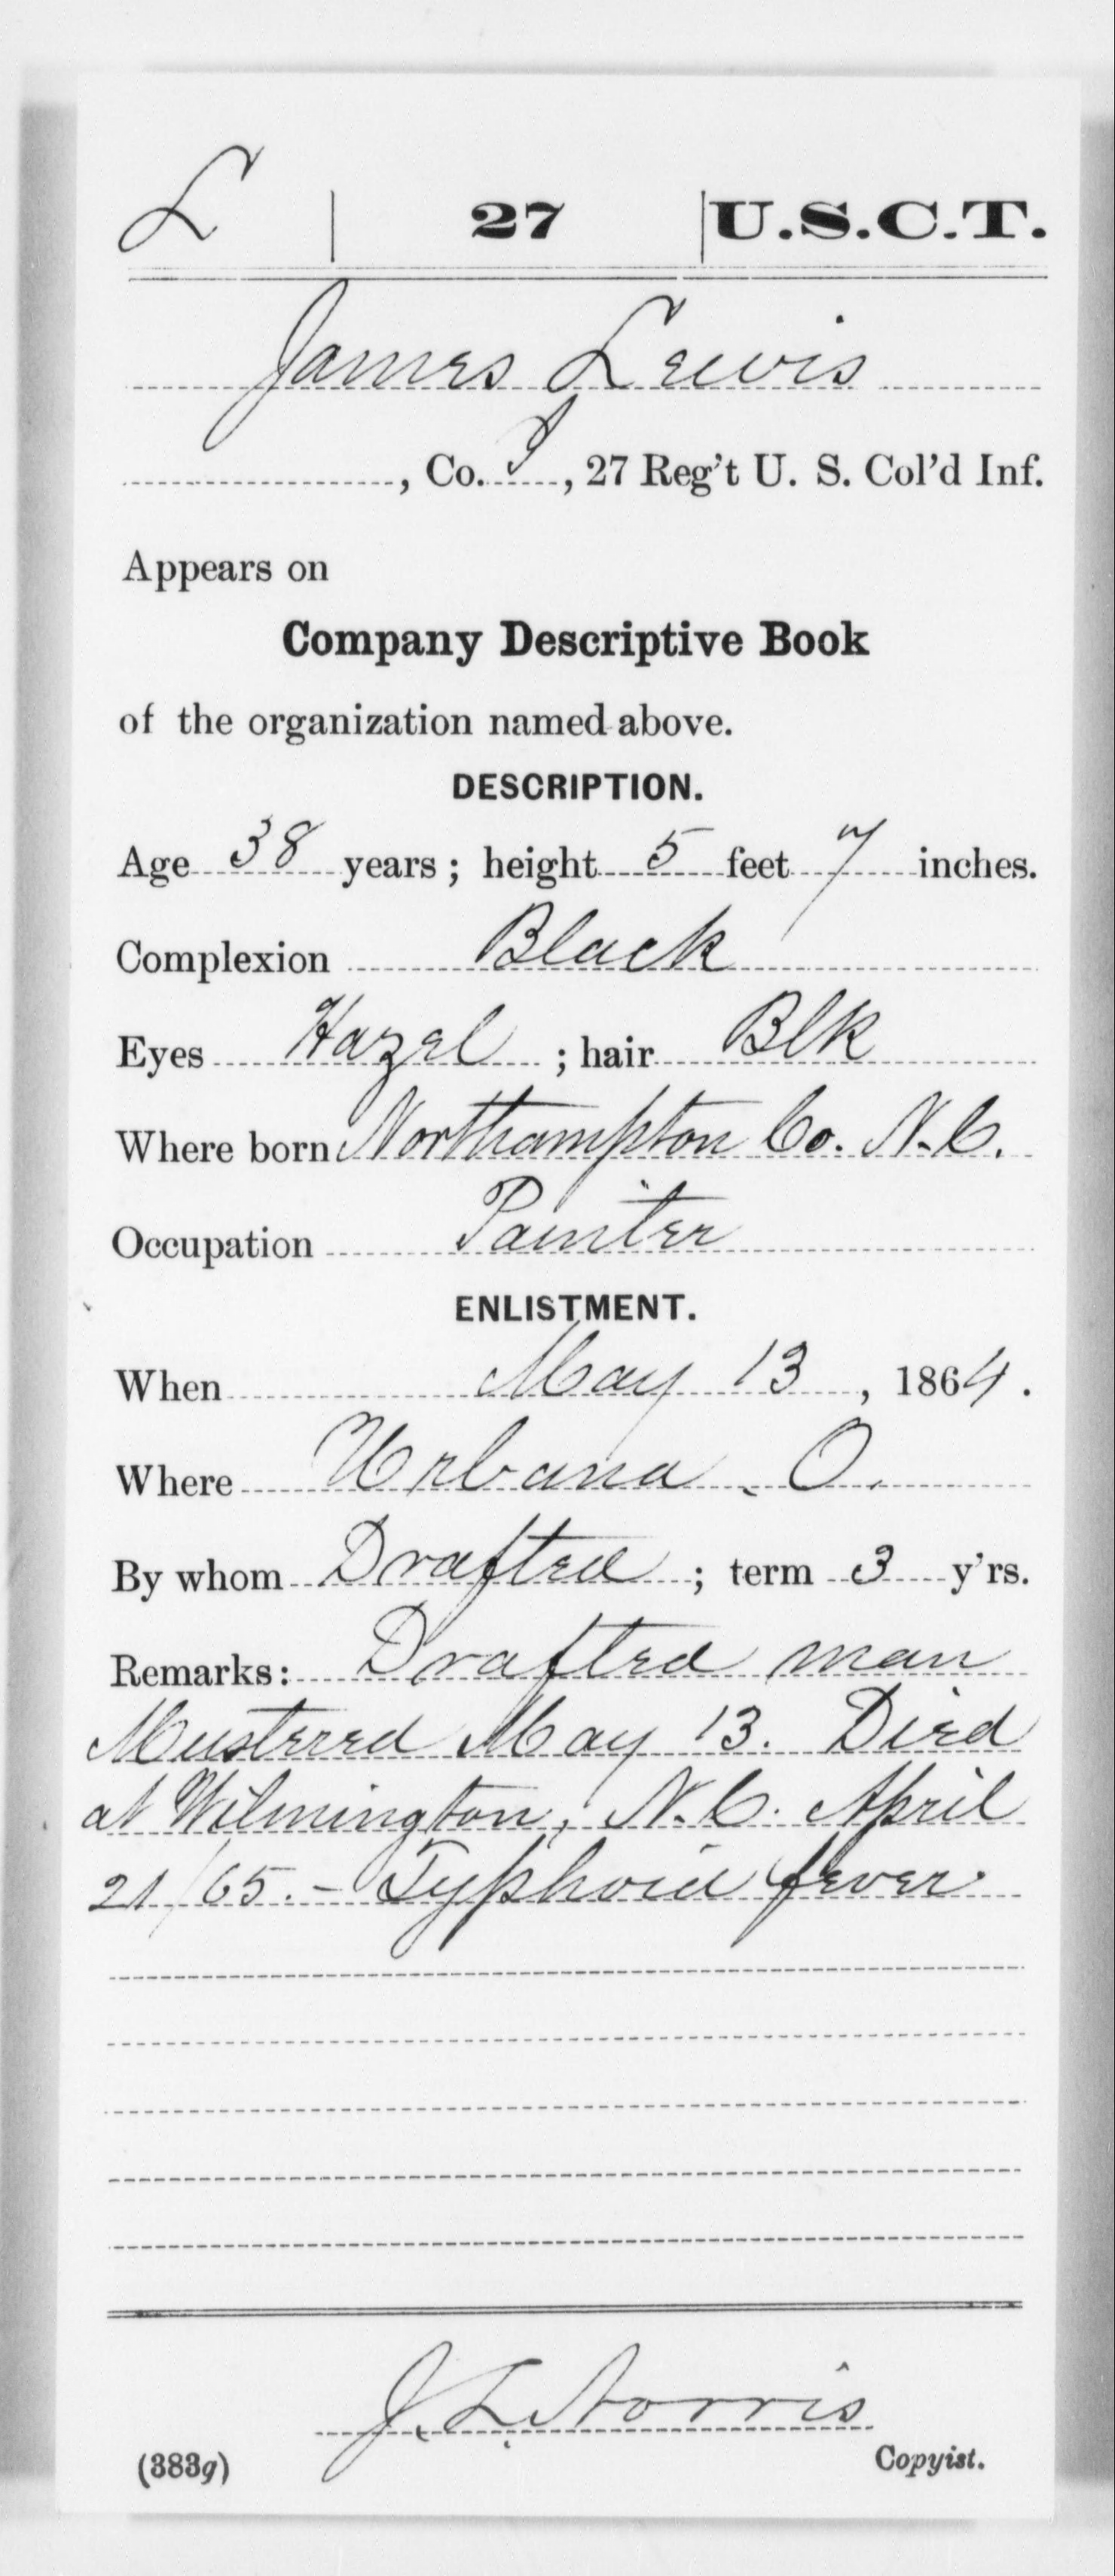 L 27 U.S.C.T.
James Lewis
, Co. I, 27 Reg't U. S. Col'd Inf.
Appears on
Company Descriptive Book
of the organization named above.
DESCRIPTION.
Age 38 years; height 5 feet 7 inches.
Complexion Black
Eyes Hazel; hair Blk
Where born Northampton Co. N.C.
Occupation Painter
ENLISTMENT.
When May 13, 1864.
Where Urbana, O.
By whom Drafted; term 3 y'rs.
Remarks: Drafted man
Mustered May 13. Died
at Wilmington, N.C. April
21/65. - Typhoid fever
J. L. Norris
(383g) Copyist.